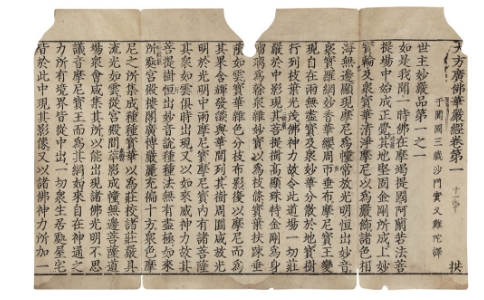 大方廣佛華嚴經卷第一
于闐國三藏沙門實叉難陀譯
世主妙嚴品第一之一
如是我聞一時佛在摩竭提國阿蘭若法菩
提場中始成正覺其地堅固金剛所成上妙
寶輪及衆寶華清淨摩尼以爲嚴飾諸色相
海無邊顯現摩尼爲幢常放光明恒出妙音
衆寶羅網妙香華纓周帀垂布摩尼寶王變
現自在雨無盡寶及衆妙華分散於地寶樹
行列枝葉光茂佛神力故令此道場一切莊
嚴於中影現其菩提樹高顯殊特金剛爲身
瑠璃爲幹衆雜妙寶以爲枝條寶葉扶踈垂
蔭如雲寶華雜色分枝布影復以摩尼而爲
其果含輝發焰與華間列其樹周圓咸放光
明於光明中雨摩尼寶摩尼寶內有諸菩薩
其衆如雲俱時出現又以如來威神力故其
菩提樹恒出妙音說種種法無有盡極如來
所處宮殿樓閣廣博嚴麗充徧十方衆色摩
尼之所集成種種寶華以爲莊校諸莊嚴具
流光如雲從宮殿間萃影成幢無邊菩薩道
場衆會咸集其所以能出現諸佛光明不思
議音摩尼寶王而爲其網如來自在神通之
力所有境界皆從中出一切衆生居處屋宅
皆於此中現其影像又以諸佛神力所加一